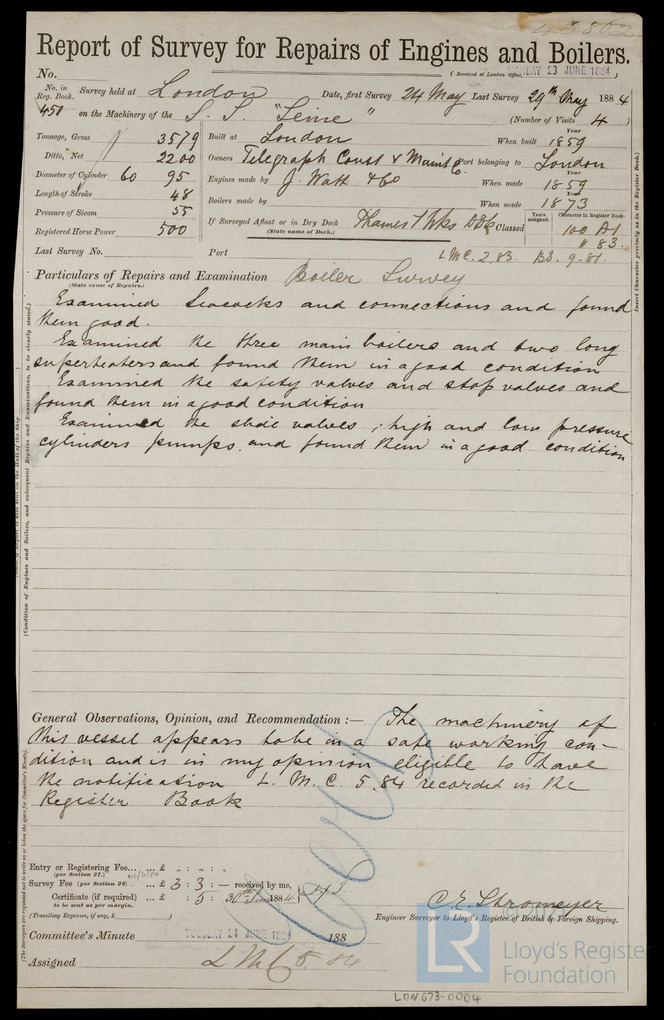 43802
Report of Survey for Repairs of Engines and Boilers.
No. (Received at London Office, MONDAY 23 JUNE 1884)
No. in Reg. Book. 450 Survey held at London Date, first Survey 24 May Last Survey 29th May 1884
on the Machinery of the S. S. "Seine" (Number of Visits 4)
Tonnage, Gross 3579
Ditto, Net 2200
Diameter of Cylinder 60 95
Length of Stroke 48
Pressure of Steam 55
Registered Horse Power 500
Built at London When built Year 1859
Owners Telegraph Const & Maint Co. Port belonging to London
Engines made by J. Watt & Co When made Year 1859
Boilers made by When made Year 1873
If Surveyed Afloat or in Dry Dock Thames I Wks Dk Classed Years assigned. Character in Register Book. 100 A1
(State name of Dock.) " 83.
Last Survey No. Port LMC. 2.83. BS. 9.81.
Particulars of Repairs and Examination Boiler Survey
(State cause of Repairs.)
Examined Seacocks and connections and found
them good.
Examined the three main boilers and two long
superheaters and found them in a good condition
Examined the safety valves and stop valves and
found them in a good condition
Examined the slide valves, high and low pressure
cylinders pumps, and found them in a good condition
General Observations, Opinion, and Recommendation :— The machinery of
this vessel appears to be in a safe working con-
dition and is in my opinion eligible to have
the notification L. M. C. 5.84 recorded in the
Register Book
Entry or Registering Fee... ... £ : :
(per Section 27.)
Survey Fee (per Section 28) ... £ 3 : 3 : — received by me,
Certificate (if required) ... £ : 5 : 1884
to be sent as per margin.
(Travelling Expenses, if any, £ )
C. E. Stromeyer
Engineer Surveyor to Lloyd's Register of British & Foreign Shipping.
Committee's Minute TUESDAY 24 JUNE 1884 188
Assigned LMC 5.84
Insert Character precisely as in the Register Book.)
(Condition of Engines and Boilers, and subsequent Repairs and Examinations, to be clearly stated.)
(The Surveyors are requested not to write on or below the space for Committee's Minute.)
LR
Lloyd's Register
Foundation
LDN673-0004